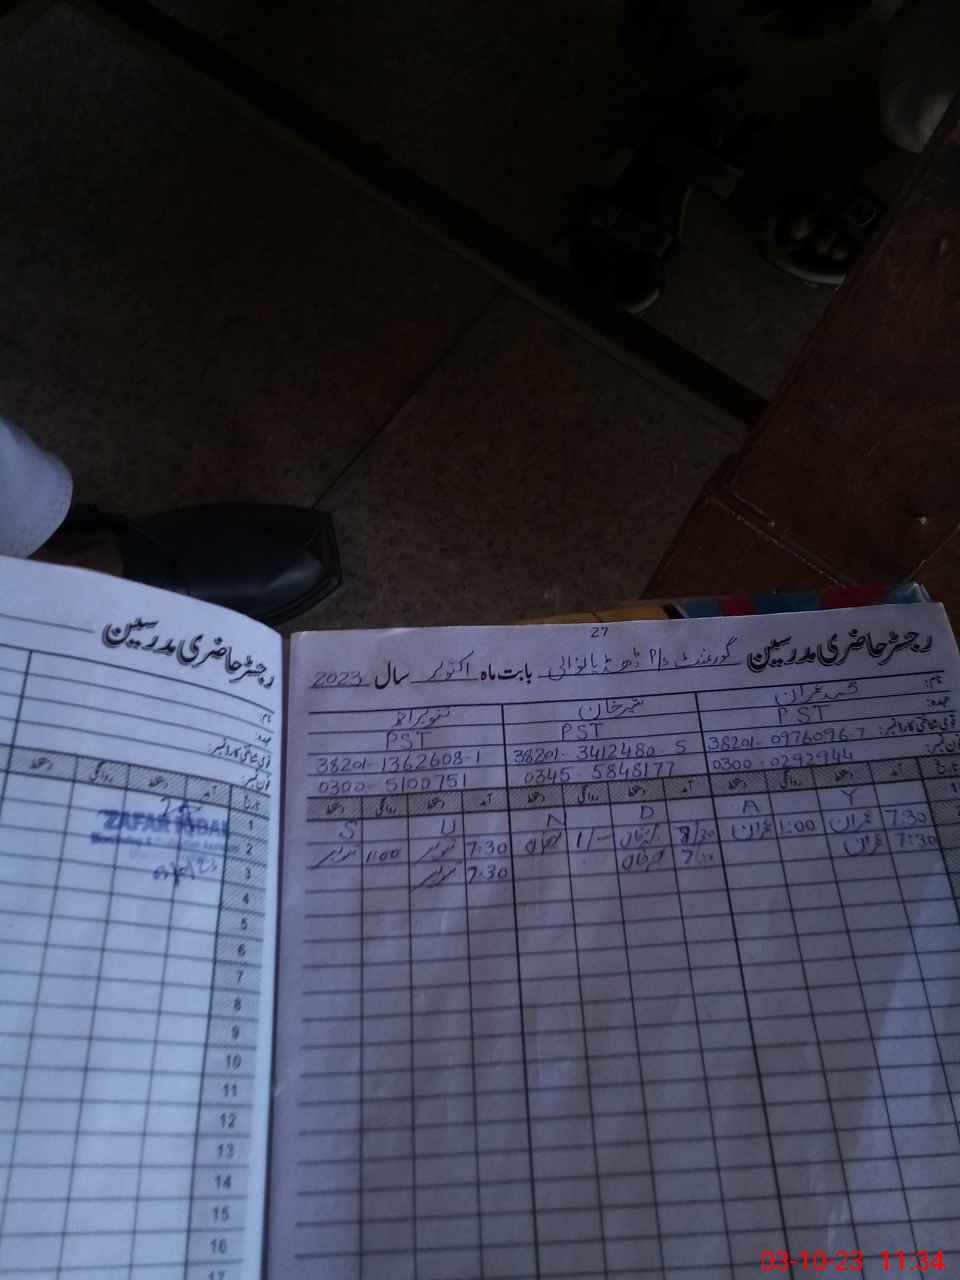 رجسٹر حاضری مدرسین
نام:
عہدہ:
قومی شناختی کارڈ نمبر:
فون نمبر:
تاریخ آمد دستخط روانگی دستخط
ZAFAR IQBAL
1
2
3
4
5
6
7
8
9
10
11
12
13
14
15
16
17
27
رجسٹر حاضری مدرسین گورنمنٹ P/S بابت ماہ اکتوبر سال 2023
نام: محمد عمران ضمیر خان تنویر احمد
عہدہ: PST PST PST
قومی شناختی کارڈ نمبر: 38201-0976096-7 38201-3412480-5 38201-1362608-1
فون نمبر: 0300-0292944 0345-5848177 0300-5100751
تاریخ آمد دستخط روانگی دستخط آمد دستخط روانگی دستخط آمد دستخط روانگی دستخط
1 S U N D A Y
2 7:30 عمران 1:00 عمران 7:30 تنویر 1:00 تنویر
7:30 عمران 7:30 تنویر
03-10-23 11:34